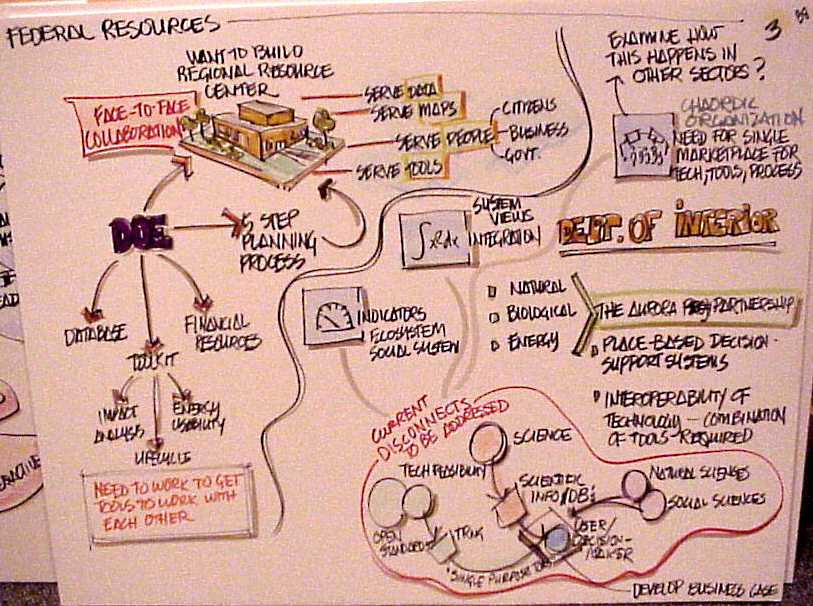 FEDERAL RESOURCES
3
WANT TO BUILD
REGIONAL RESOURCE
CENTER
FACE-TO-FACE
COLLABORATION
SERVE DATA
SERVE MAPS
SERVE PEOPLE
SERVE TOOLS
CITIZENS
BUSINESS
GOVT.
DOE
5 STEP
PLANNING
PROCESS
DATABASE
TOOLKIT
FINANCIAL
RESOURCES
IMPACT
ANALYSIS
LIFECYCLE
ENERGY
USABILITY
NEED TO WORK TO GET
TOOLS TO WORK WITH
EACH OTHER
EXAMINE HOW
THIS HAPPENS IN
OTHER SECTORS?
CHAORDIC
ORGANIZATION
NEED FOR SINGLE
MARKETPLACE FOR
TECH, TOOLS, PROCESS
SYSTEM
VIEWS
INTEGRATION
DEPT. OF INTERIOR
INDICATORS
ECOSYSTEM
SOCIAL SYSTEM
NATURAL
BIOLOGICAL
ENERGY
THE AURORA PARTNERSHIP
PLACE-BASED DECISION-
SUPPORT SYSTEMS
INTEROPERABILITY OF
TECHNOLOGY - COMBINATION
OF TOOLS REQUIRED
CURRENT
DISCONNECTS
TO BE ADDRESSED
SCIENCE
TECH FEASIBILITY
SCIENTIFIC
INFO/DB's
NATURAL SCIENCES
SOCIAL SCIENCES
OPEN
STANDARD
USER/
DECISION-
MAKER
"SINGLE PURPOSE
DEVELOP BUSINESS CASE